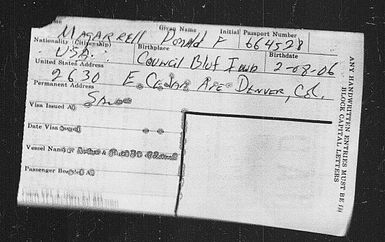 Given Name Initial Passport Number
Magarrell Donald F 664528
Nationality (Citizenship) Birthplace Birthdate
USA. Council Bluf Iowa 2-08-06
United States Address
2630 E. Cedar Ave Denver, Col.
Permanent Address
Same
Visa Issued At
Date Visa Issued
Vessel Name
Passenger Boarded At
ANY HANDWRITTEN ENTRIES MUST BE IN
BLOCK CAPITAL LETTERS